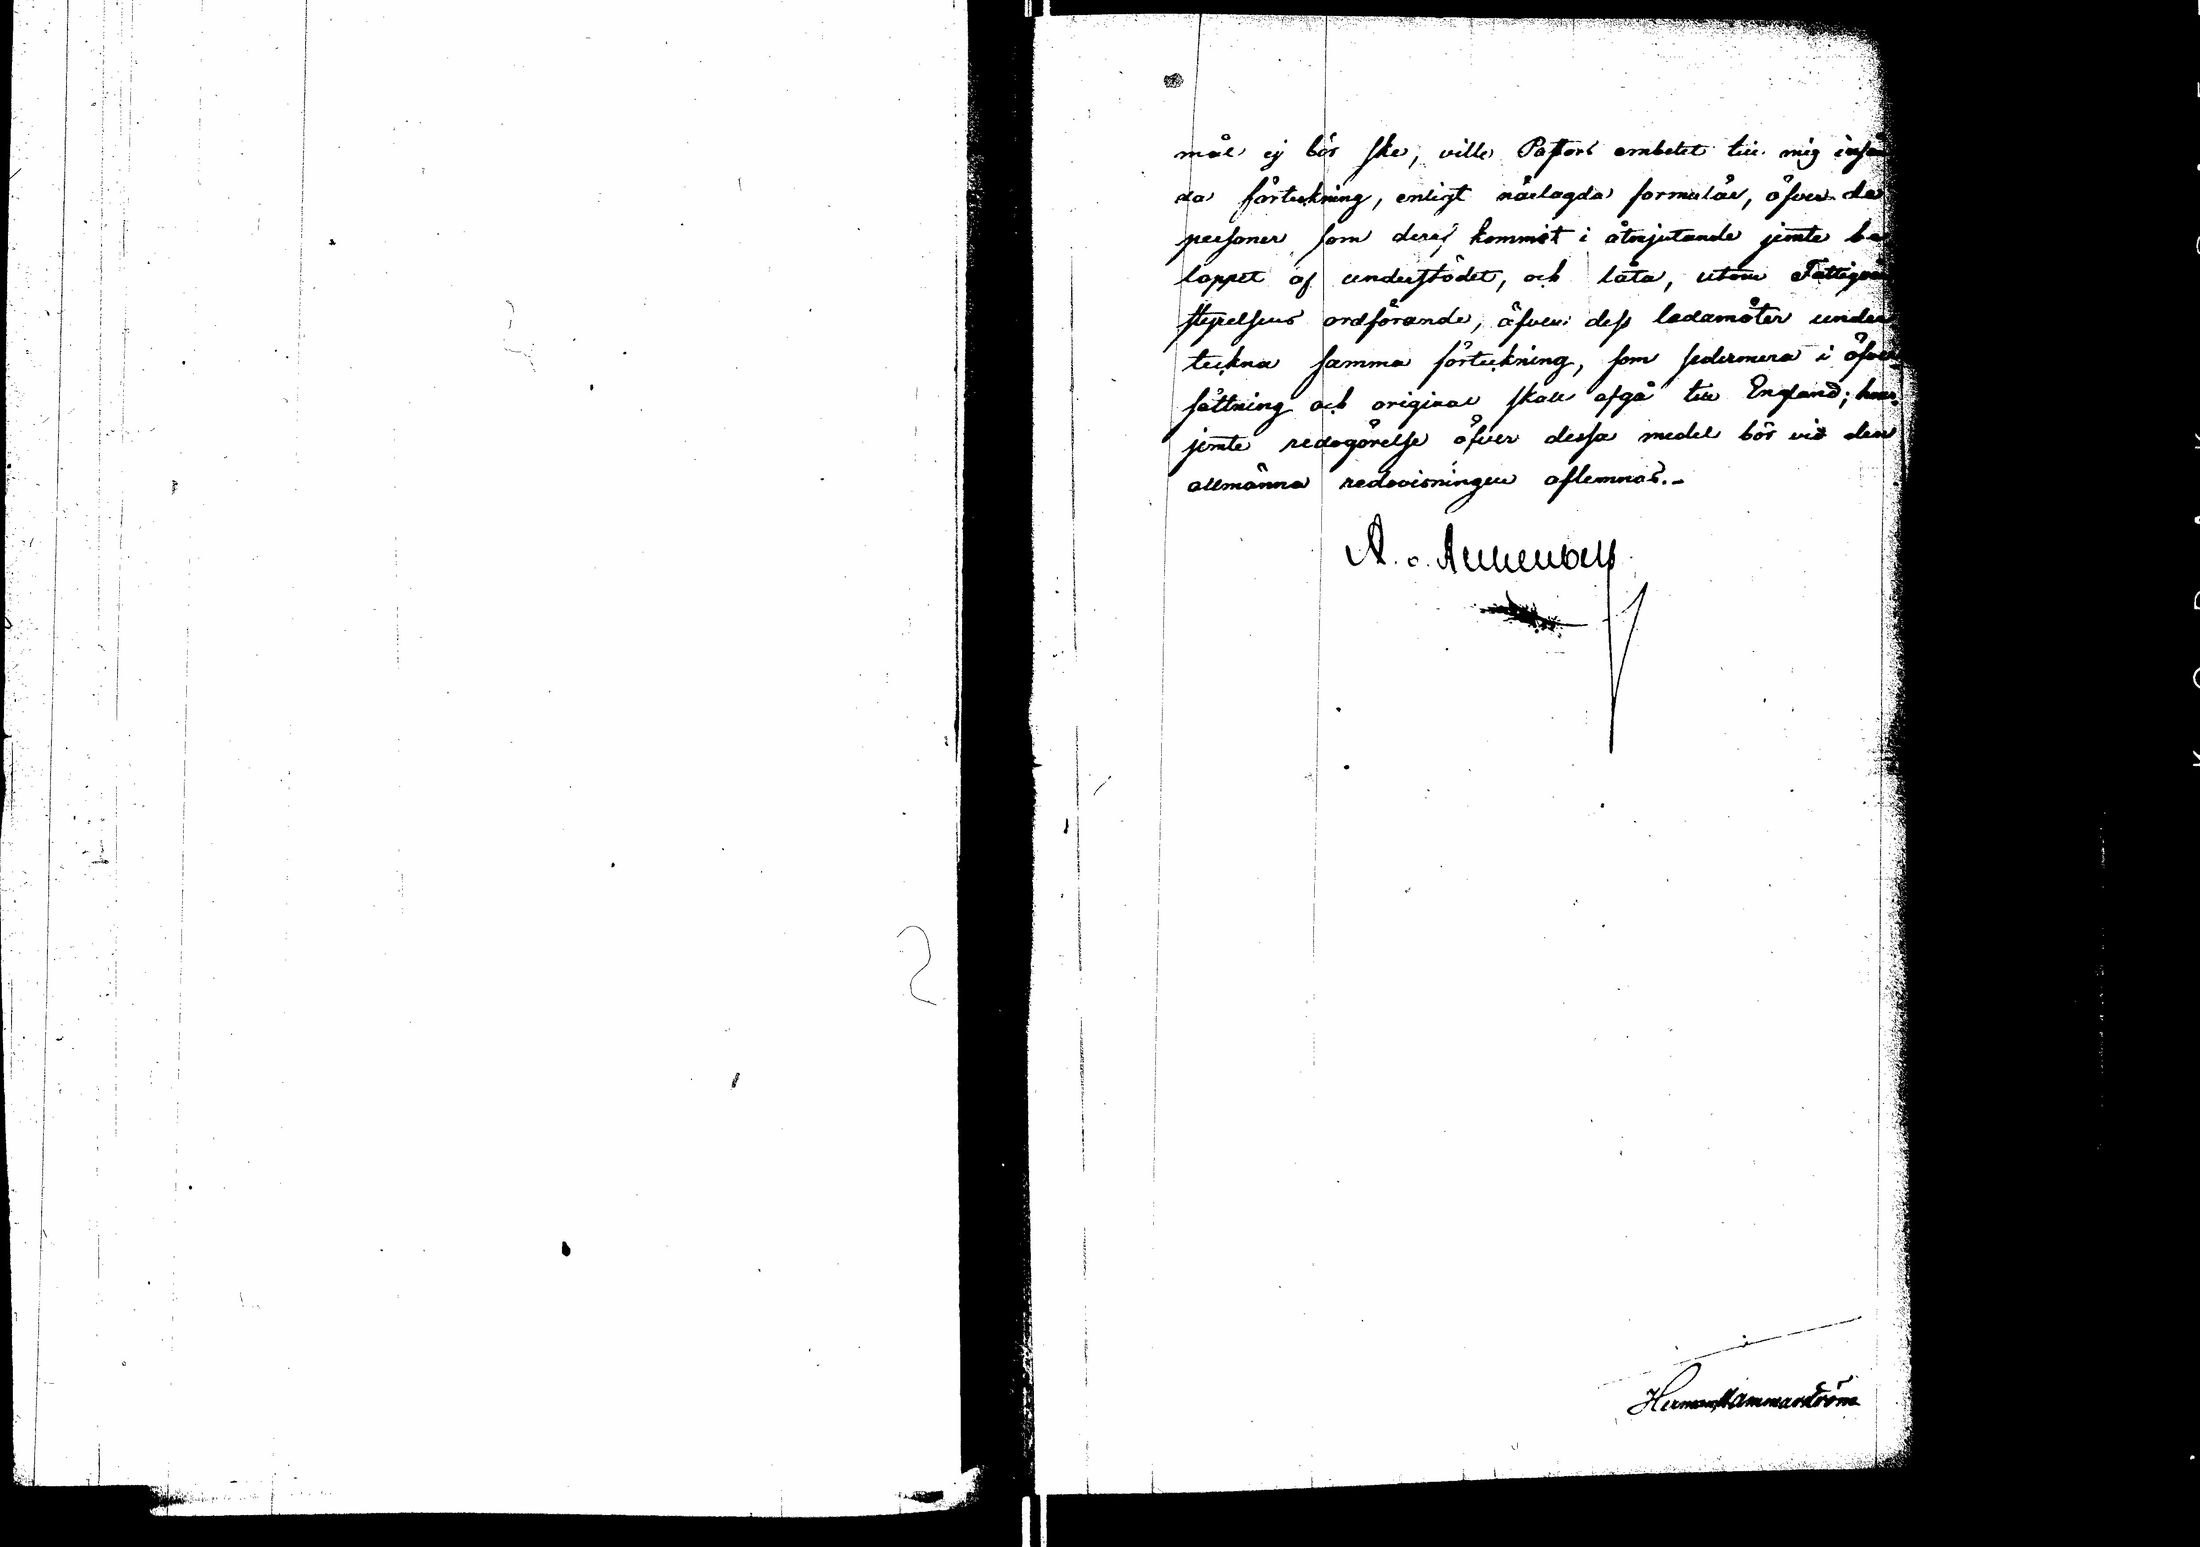 mål ej bör ske, ville Pastors embetet till mig insän
da förteckning, enligt närlagda formulär, öfver de
personer som deraf kommit i åtnjutande jemte be
loppet af understödet, och låta, utom Fattigvårds
styrelsens ordförande, äfven dess ledamöter under
teckna samma förteckning, som sedermera i öfver
sättning och original skall afgå till England; hvar
jemte redogörelse öfver dessa medel bör vid den
allmänna redovisningen aflemnas.-
Herman Hammarström